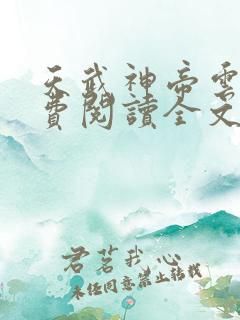 天武神帝雲
費閱讀全文
君茗我心
未经同意禁止转载